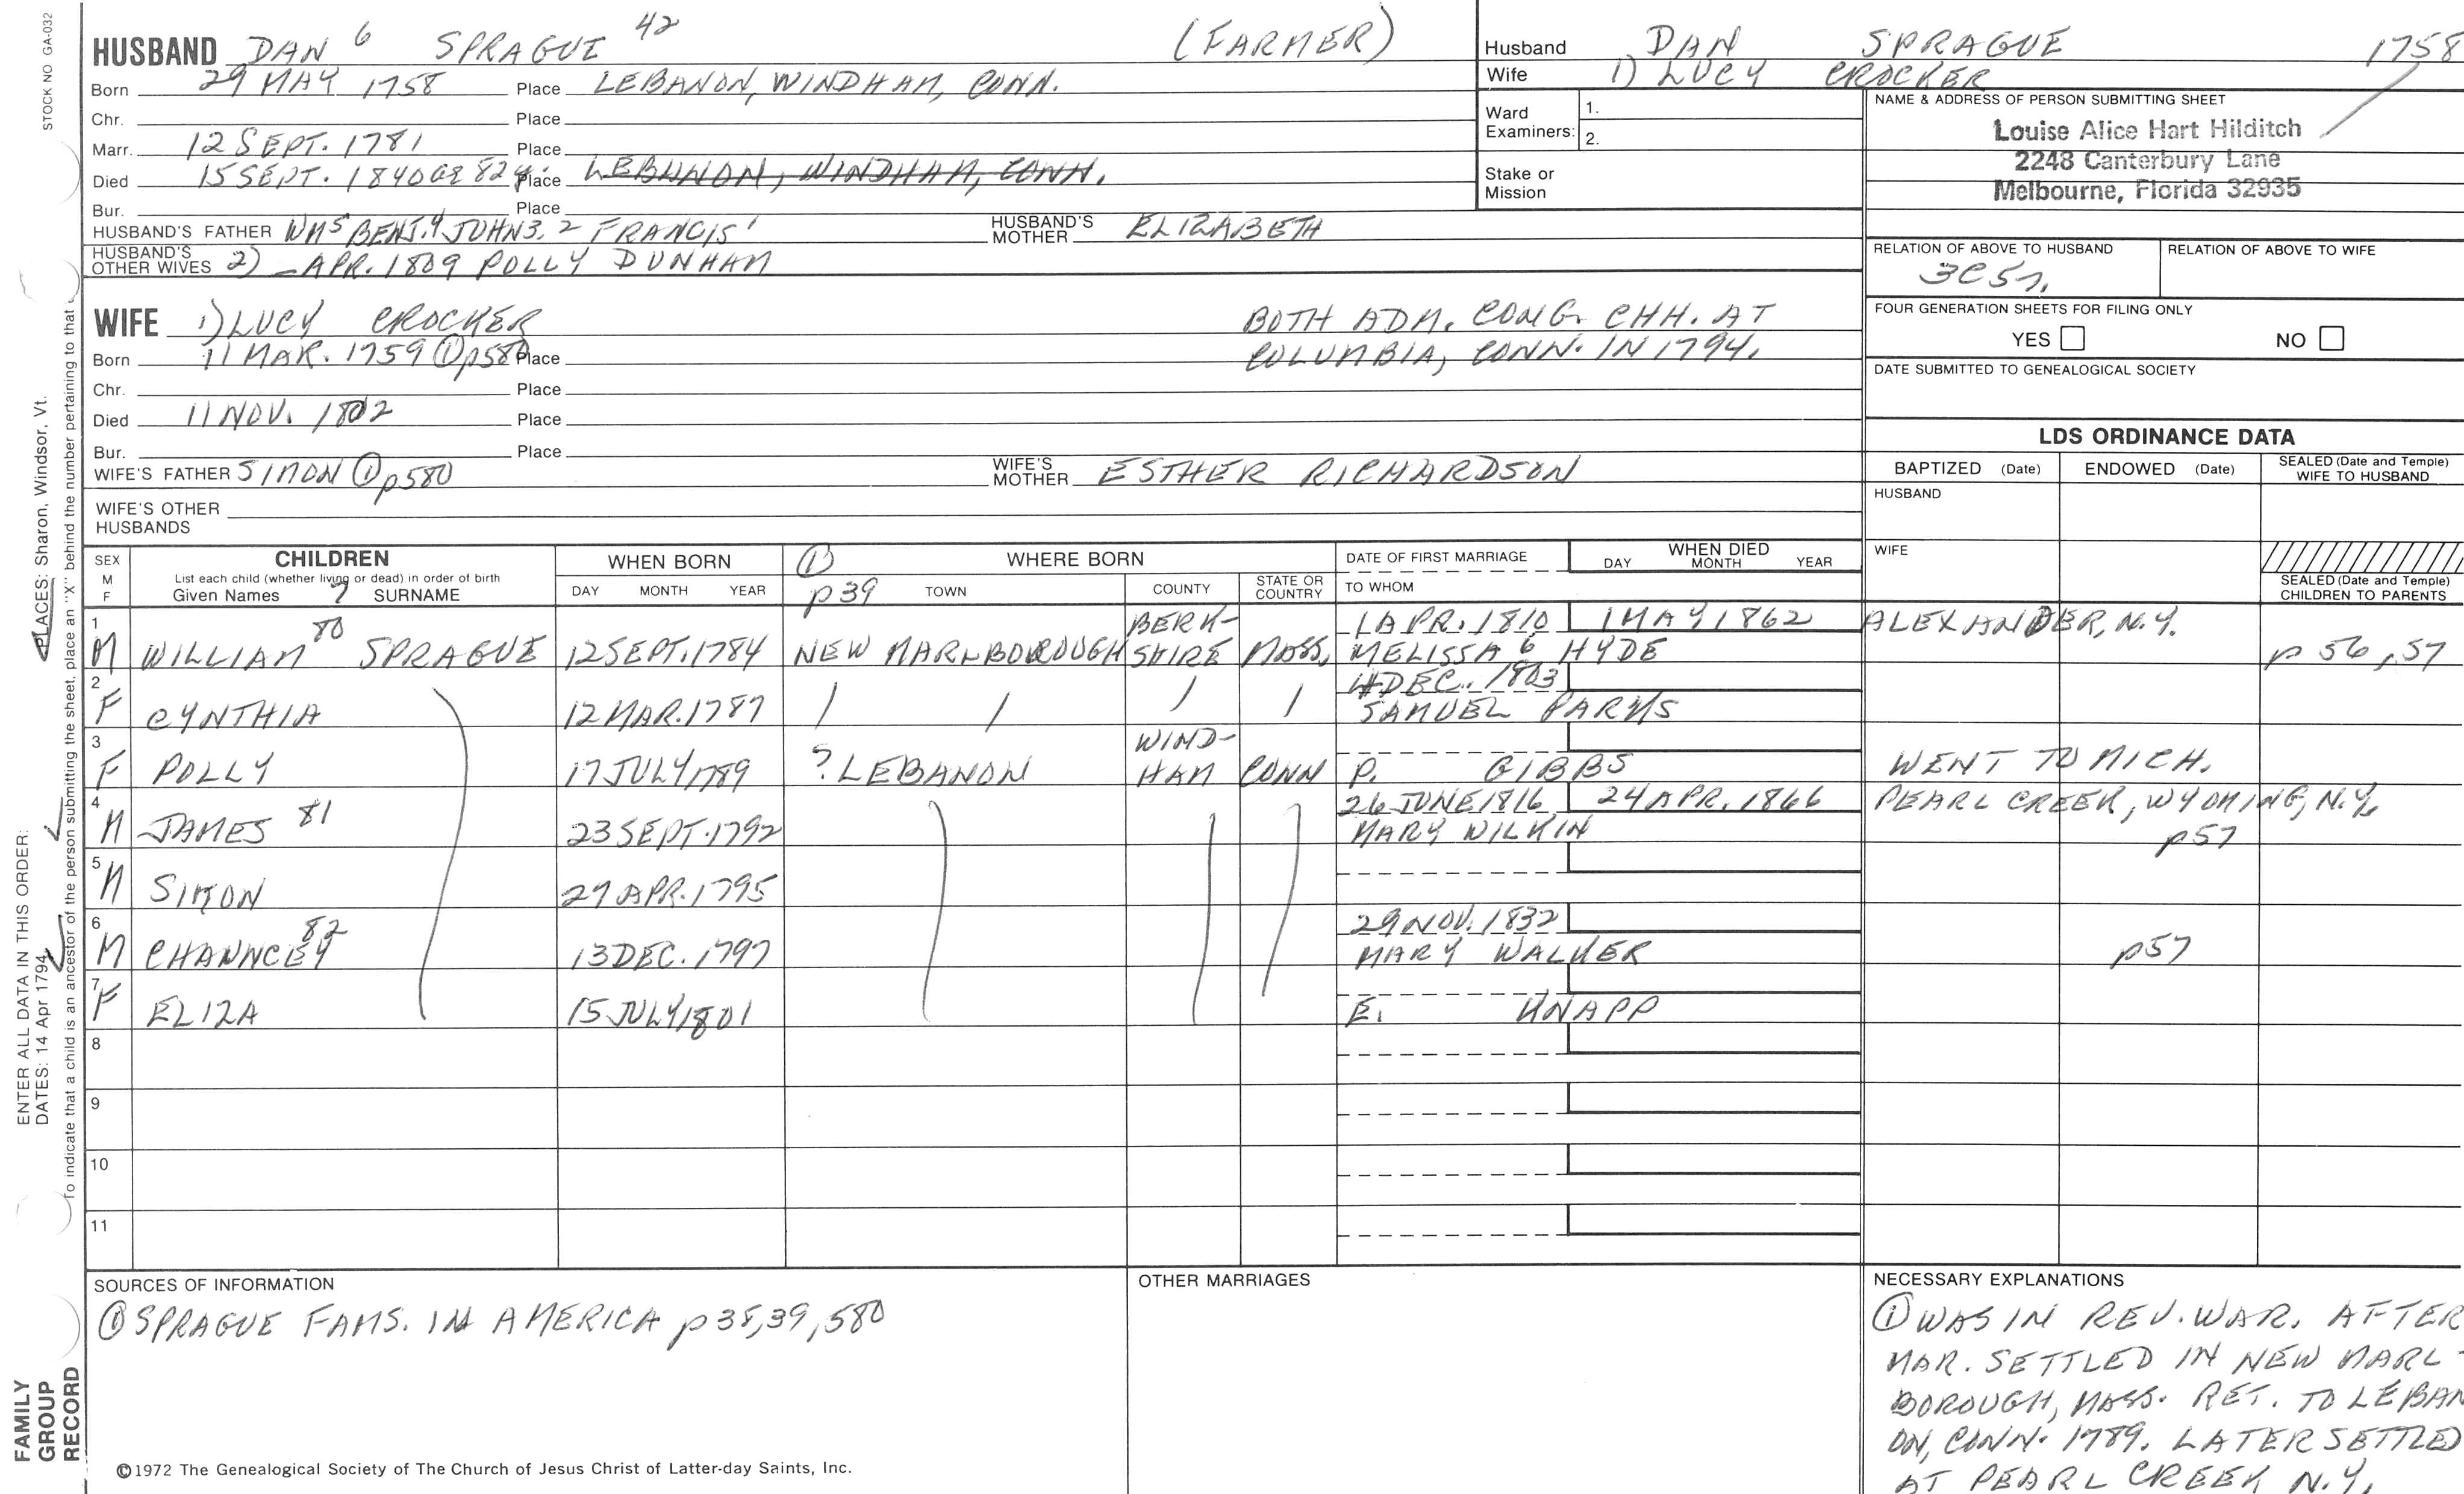 STOCK NO GA-032
HUSBAND DAN 6 SPRAGUE 42 (FARMER)
Born 29 MAY 1758 Place LEBANON, WINDHAM, CONN.
Chr. Place
Marr. 12 SEPT. 1781 Place
Died 15 SEPT. 1840 AE 82 y. Place LEBANON, WINDHAM, CONN.
Bur. Place
HUSBAND'S FATHER WM5 BENJ.4 JOHN3, 2 FRANCIS1 HUSBAND'S MOTHER ELIZABETH
HUSBAND'S OTHER WIVES 2) –APR. 1809 POLLY DUNHAM
Husband DAN SPRAGUE 1758
Wife 1) LUCY CROCKER
Ward Examiners: 1.
2.
Stake or Mission
NAME & ADDRESS OF PERSON SUBMITTING SHEET
Louise Alice Hart Hilditch
2248 Canterbury Lane
Melbourne, Florida 32935
RELATION OF ABOVE TO HUSBAND RELATION OF ABOVE TO WIFE
3C5r.
FOUR GENERATION SHEETS FOR FILING ONLY
YES NO
DATE SUBMITTED TO GENEALOGICAL SOCIETY
WIFE 1) LUCY CROCKER BOTH ADM. CONG. CHH. AT
Born 11 MAR. 1759 ① p580 Place COLUMBIA, CONN. IN 1794.
Chr. Place
Died 11 NOV. 1802 Place
Bur. Place
WIFE'S FATHER SIMON ① p580 WIFE'S MOTHER ESTHER RICHARDSON
WIFE'S OTHER
HUSBANDS
LDS ORDINANCE DATA
BAPTIZED (Date) ENDOWED (Date) SEALED (Date and Temple) WIFE TO HUSBAND
HUSBAND
WIFE
SEALED (Date and Temple)
CHILDREN TO PARENTS
SEX M F CHILDREN WHEN BORN ① WHERE BORN DATE OF FIRST MARRIAGE WHEN DIED
List each child (whether living or dead) in order of birth
Given Names 7 SURNAME DAY MONTH YEAR p39 TOWN COUNTY STATE OR COUNTRY TO WHOM DAY MONTH YEAR
1 M WILLIAM 80 SPRAGUE 12 SEPT. 1784 NEW MARLBOROUGH BERKSHIRE MASS. 1 APR. 1810 1 MAY 1862 ALEXANDER, N.Y.
MELISSA 6 HYDE p 56, 57
2 F CYNTHIA 12 MAR. 1787 / / / / 4 DEC. 1803
SAMUEL PARKS
3 F POLLY 17 JULY 1789 ? LEBANON WIND-HAM CONN P. GIBBS WENT TO MICH.
4 M JAMES 81 23 SEPT. 1792 26 JUNE 1816 24 APR. 1866 PEARL CREEK, WYOMING, N.Y.
MARY WILKIN p57
5 M SIMON 27 APR. 1795
6 M CHANNCEY 82 13 DEC. 1797 29 NOV. 1832
MARY WALKER p57
7 F ELIZA 15 JULY 1801 E. KNAPP
8
9
10
11
SOURCES OF INFORMATION
① SPRAGUE FAMS. IN AMERICA p38,39,580
OTHER MARRIAGES
NECESSARY EXPLANATIONS
① WAS IN REV. WAR. AFTER
MAR. SETTLED IN NEW MARL-
BOROUGH, MASS. RET. TO LEBAN
ON, CONN. 1789. LATER SETTLED
AT PEARL CREEK N.Y.
©1972 The Genealogical Society of The Church of Jesus Christ of Latter-day Saints, Inc.
FAMILY
GROUP
RECORD
ENTER ALL DATA IN THIS ORDER:
DATES: 14 Apr 1794
PLACES: Sharon, Windsor, Vt.
To indicate that a child is an ancestor of the person submitting the sheet, place an "X" behind the number pertaining to that